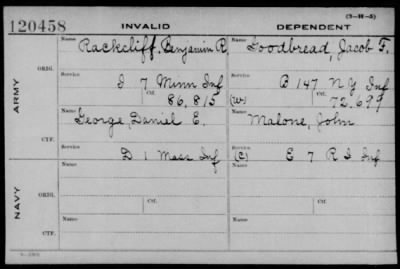 120458 INVALID DEPENDENT (3—H—5)
ARMY
NAVY
ORIG.
CTF.
ORIG.
CTF.
Name Rackcliff, Benjamin R.
Name Goodbread, Jacob F.
Service I 7 Minn Inf
Service B 147 N.Y. Inf
Ctf. 86,815
(W) Ctf. 72,699
Name George, Daniel E.
Name Malone, John
Service D 1 Mass Inf
Service (C) E 7 R I Inf
Name
Name
Service Ctf.
Service Ctf.
Name
Name
Service
Service